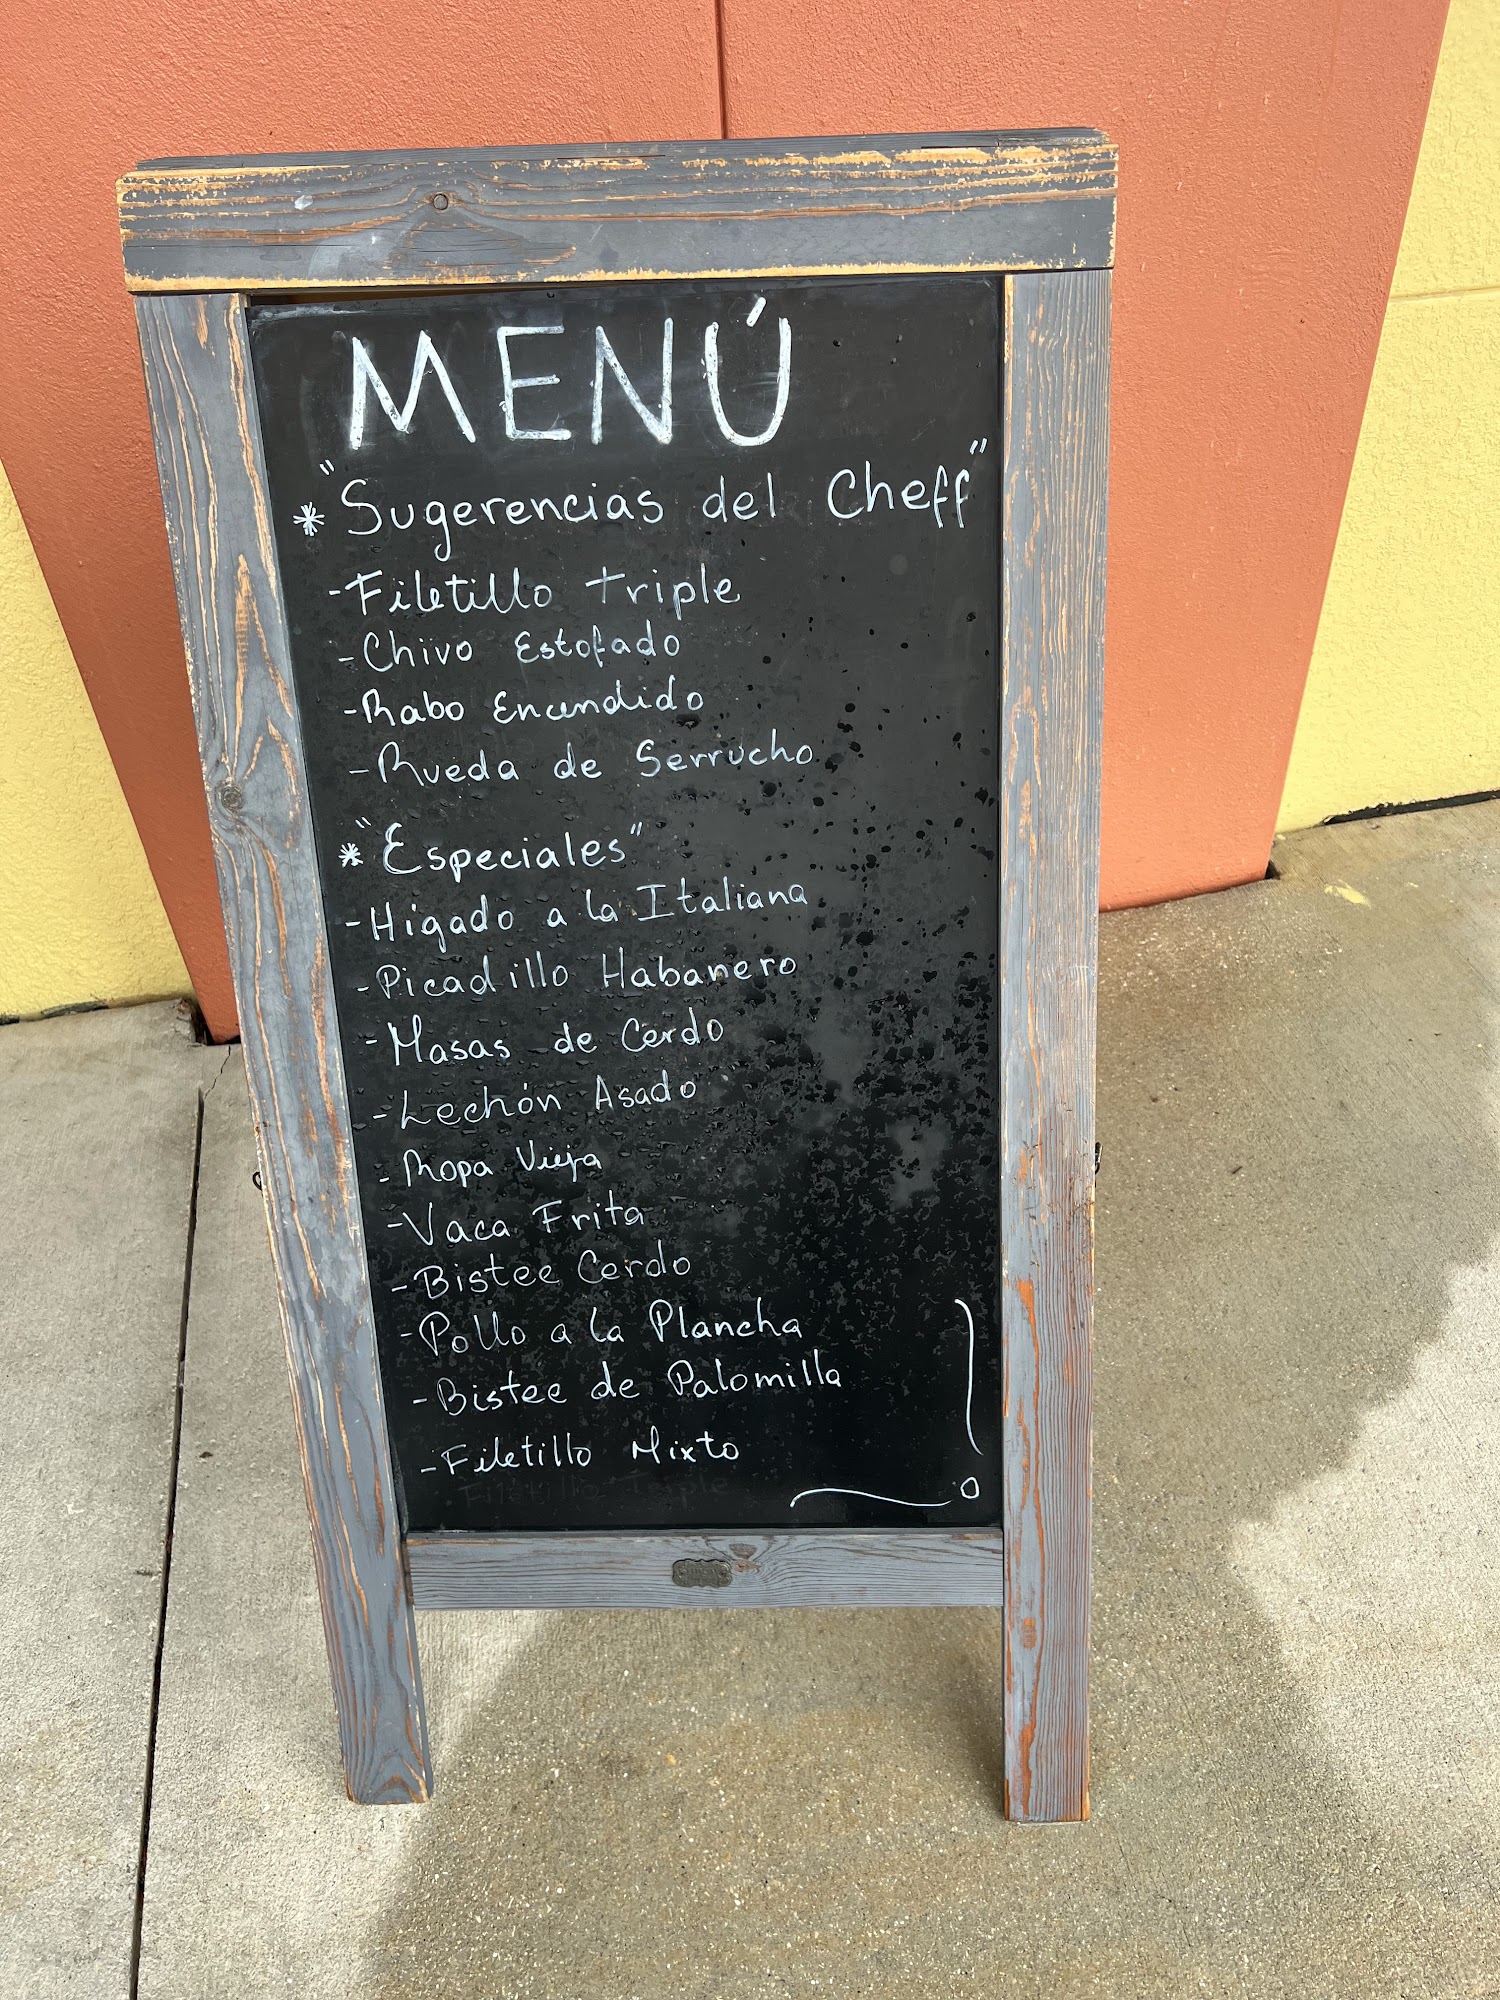 MENÚ
* "Sugerencias del Cheff"
- Filetillo triple
- Chivo Estofado
- Rabo Encendido
- Rueda de Serrucho
* "Especiales"
- Higado a la Italiana
- Picadillo Habanero
- Masas de Cerdo
- Lechón Asado
- Ropa Vieja
- Vaca Frita
- Bistee Cerdo
- Pollo a la Plancha
- Bistee de Palomilla
- Filetillo Mixto
Filetillo Triple